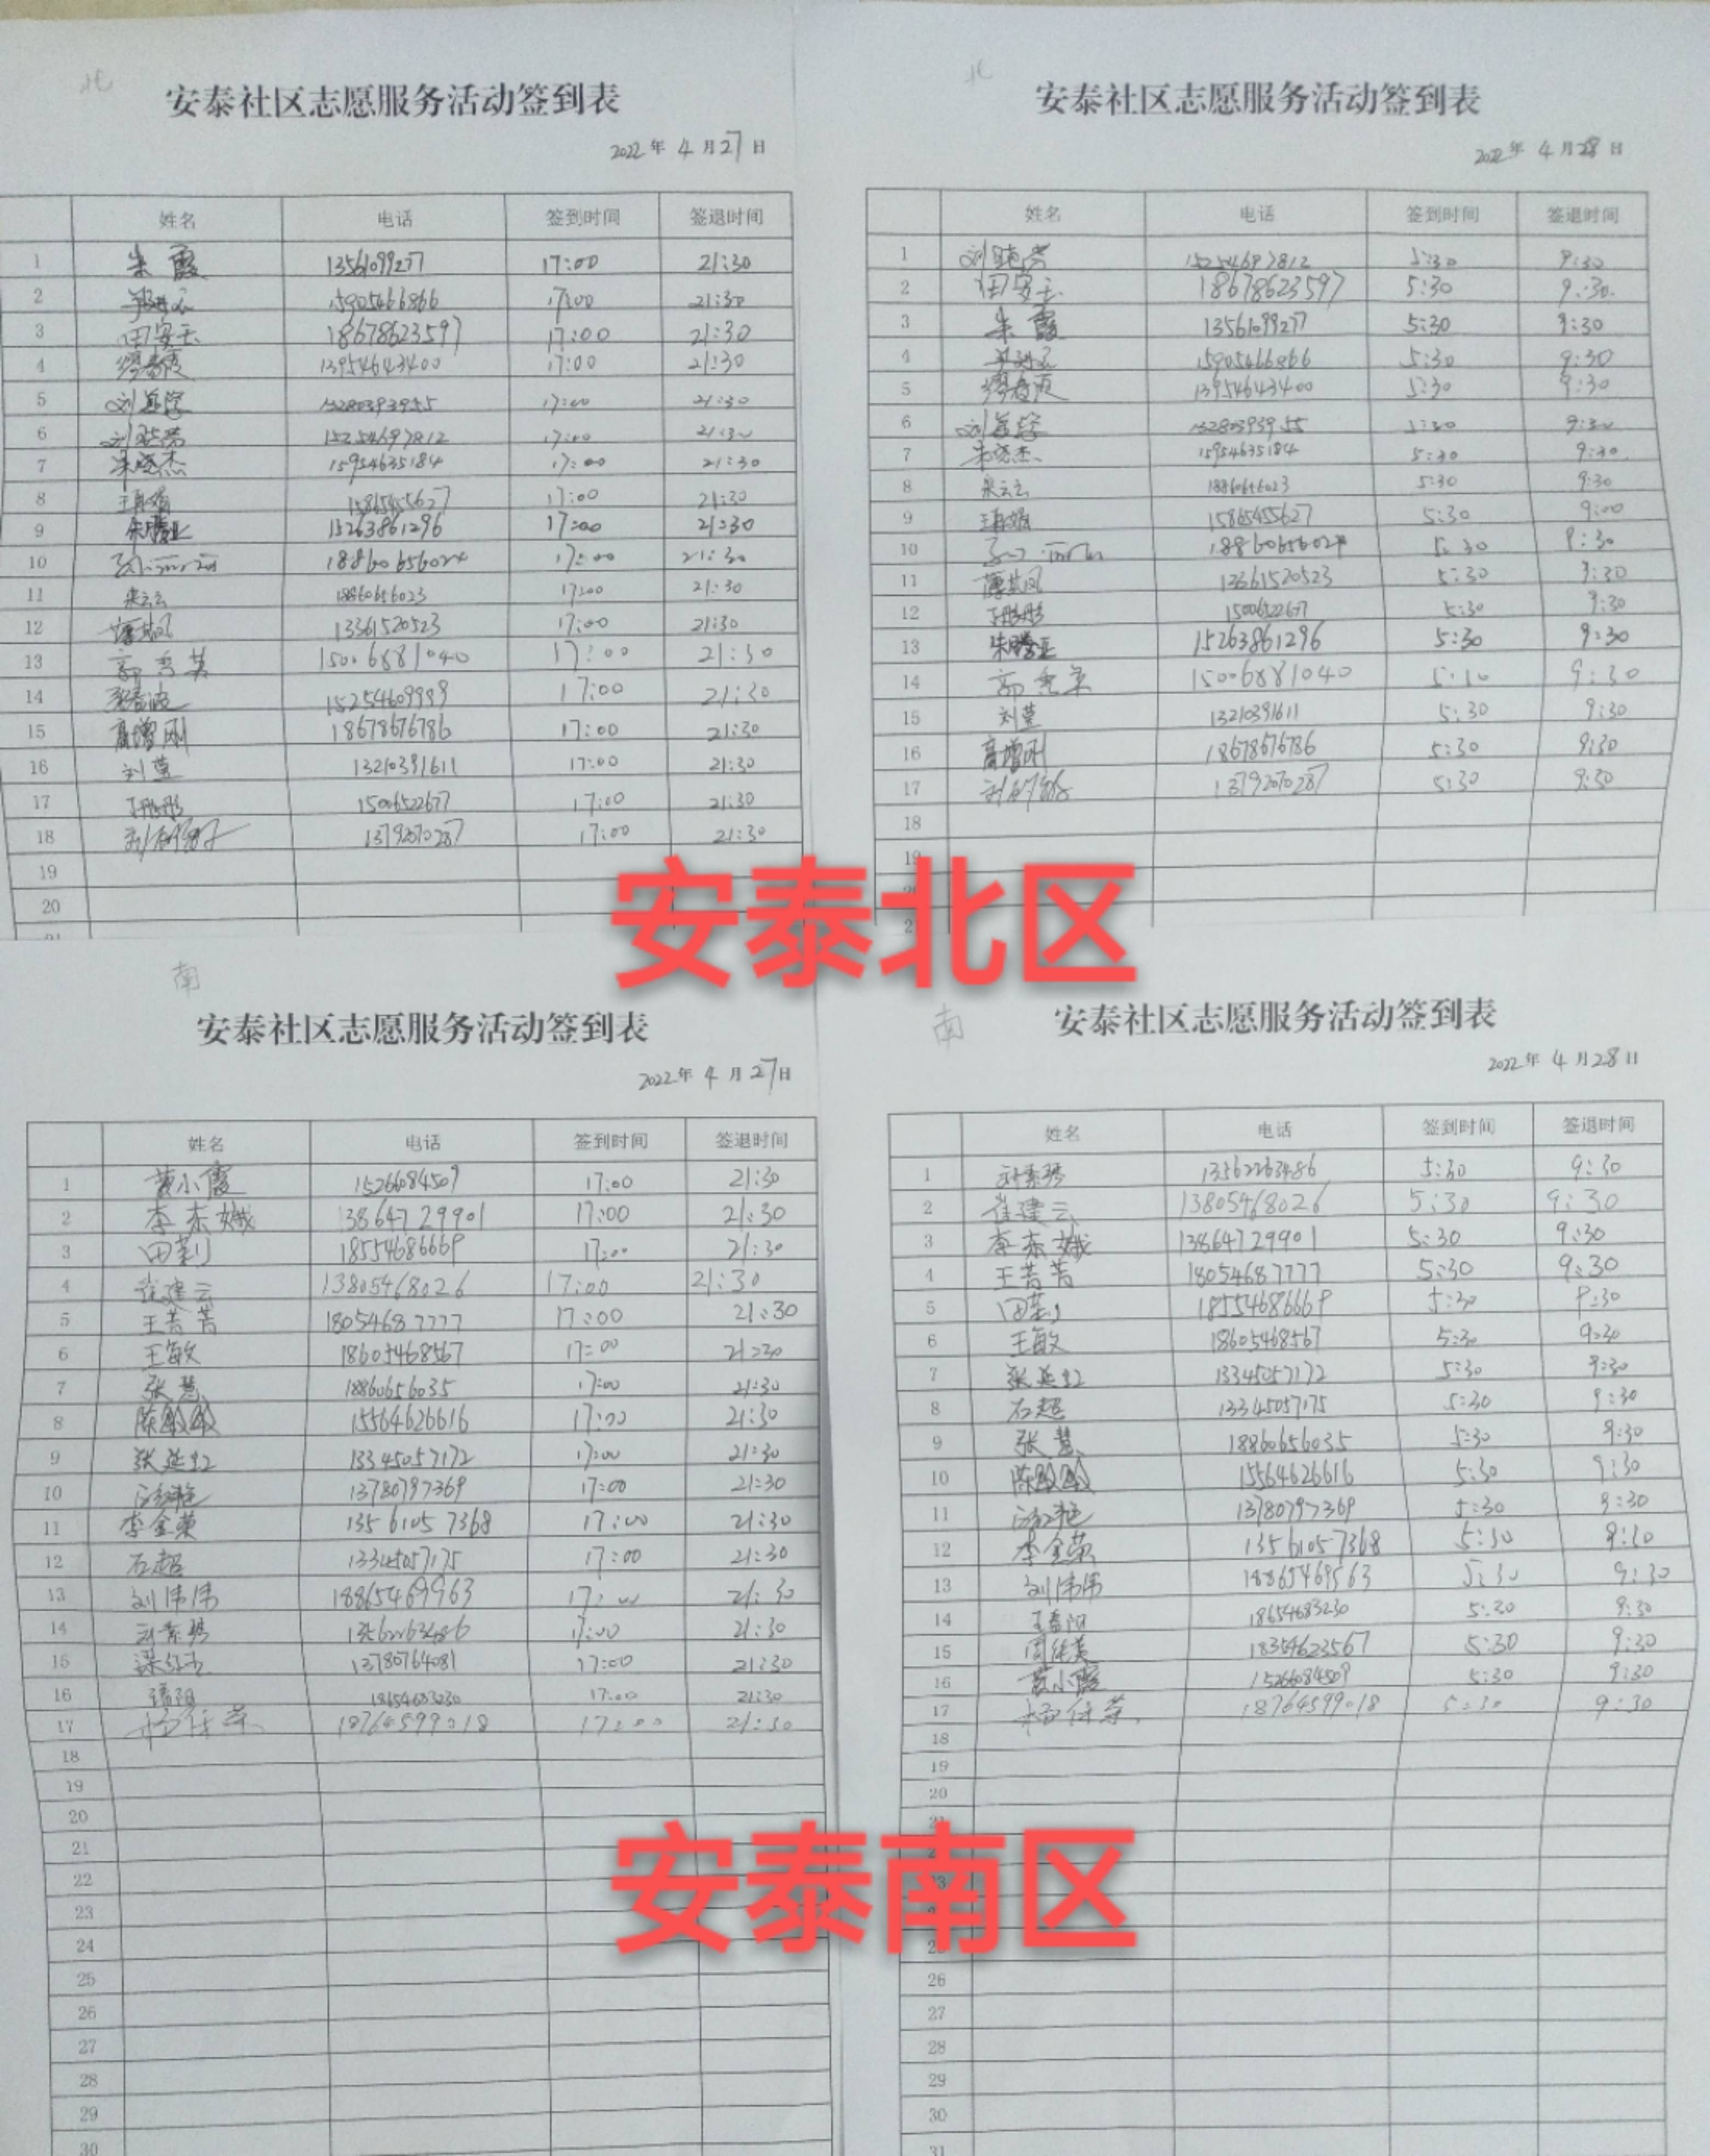 北
安泰社区志愿服务活动签到表
2022年 4月27日
姓名 电话 签到时间 签退时间
1 朱霞 13561099277 17:00 21:30
2 15905466866 17:00 21:30
3 田安玉 18678623597 17:00 21:30
4 13954643400 17:00 21:30
5 刘 13280393955 17:00 21:30
6 刘 15254697812 17:00 21:30
7 朱晓杰 15954635184 17:00 21:30
8 王 15865455627 17:00 21:30
9 朱 15263861296 17:00 21:30
10 18860656024 17:00 21:30
11 18860656023 17:00 21:30
12 13361520523 17:00 21:30
13 郭秀英 15006881040 17:00 21:30
14 15254609999 17:00 21:30
15 高增刚 18678676786 17:00 21:30
16 刘萱 13210391611 17:00 21:30
17 15006522677 17:00 21:30
18 13792070287 17:00 21:30
19
20
21
北
安泰社区志愿服务活动签到表
2022年 4月28日
姓名 电话 签到时间 签退时间
1 刘 15254697812 5:30 9:30
2 田安玉 18678623597 5:30 9:30
3 朱霞 13561099277 5:30 9:30
4 15905466866 5:30 9:30
5 13954643400 5:30 9:30
6 刘 13280393955 5:30 9:30
7 朱晓杰 15954635184 5:30 9:30
8 18860656023 5:30 9:30
9 王 15865455627 5:30 9:00
10 18860656024 5:30 9:30
11 13361520523 5:30 9:30
12 15006522677 5:30 9:30
13 朱 15263861296 5:30 9:30
14 郭秀英 15006881040 9:30
15 刘萱 13210391611 5:30 9:30
16 高增刚 18678676786 5:30 9:30
17 13792070287 5:30 9:30
18
19
安泰北区
南
安泰社区志愿服务活动签到表
2022年 4月27日
姓名 电话 签到时间 签退时间
1 黄小霞 15266084509 17:00 21:30
2 李东娥 13864729901 17:00 21:30
3 田莉 18554686669 17:00 21:30
4 崔建云 13805468026 17:00 21:30
5 王菁菁 18054687777 17:00 21:30
6 王敏 18605468567 17:00 21:30
7 张慧 18860656035 17:00 21:30
8 陈 15564626616 17:00 21:30
9 张延虹 13345057172 17:00 21:30
10 13780797369 17:00 21:30
11 李金荣 13561057368 17:00 21:30
12 石超 13345057175 17:00 21:30
13 刘伟伟 18865469963 17:00 21:30
14 13562263486 17:00 21:30
15 梁红玉 13780764081 17:00 21:30
16 18654683230 17:00 21:30
17 杨佳荣 18764599018 17:00 21:30
18
19
20
21
22
23
24
25
26
27
28
29
30
南
安泰社区志愿服务活动签到表
2022年 4月28日
姓名 电话 签到时间 签退时间
1 13562263486 5:30 9:30
2 崔建云 13805468026 5:30 9:30
3 李东娥 13864729901 5:30 9:30
4 王菁菁 18054687777 5:30 9:30
5 田莉 18554686669 5:30 9:30
6 王敏 18605468567 5:30 9:30
7 张延虹 13345057172 5:30 9:30
8 石超 13345057175 5:30 9:30
9 张慧 18860656035 5:30 9:30
10 陈 15564626616 5:30 9:30
11 13780797369 5:30 9:30
12 李金荣 13561057368 5:30 9:30
13 刘伟伟 18865469563 5:30 9:30
14 18654683230 5:30 9:30
15 周 18354623567 5:30 9:30
16 黄小霞 15266084509 5:30 9:30
17 杨佳荣 18764599018 5:30 9:30
18
19
20
21
安泰南区
26
27
28
29
30
31